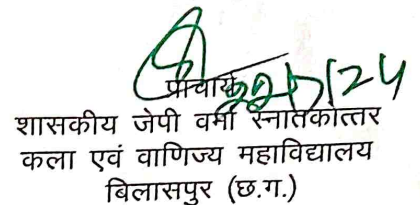 प्राचार्य
शासकीय जेपी वर्मा स्नातकोत्तर
कला एवं वाणिज्य महाविद्यालय
बिलासपुर (छ.ग.)